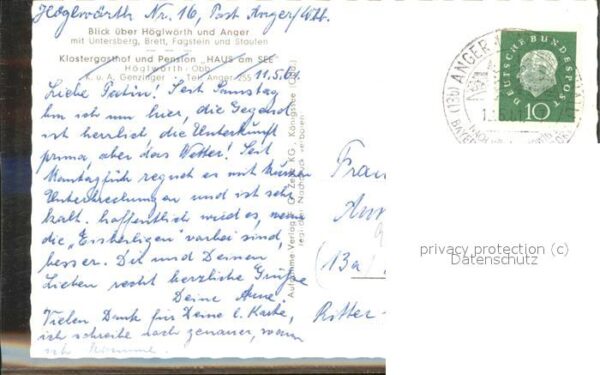 Höglwörth Nr. 16, Post Anger/Obb.
Blick über Höglwörth und Anger
mit Untersberg, Brett, Fagstein und Staufen
Klostergasthof und Pension „HAUS am SEE"
Höglwörth Obb.
K. u. A. Genzinger Tel. Anger 255
11.5.61.
Liebe Patin! Seit Samstag
bin ich nun hier, die Gegend
ist herrlich die Unterkunft
prima, aber das Wetter! Seit
Montagfrüh regnet es mit kurzen
Unterbrechungen und ist sehr
kalt. Hoffentlich wird es, wenn
die „Eisheiligen" vorbei sind,
besser. Dir und Deinen
Lieben recht herzliche Grüße
Deine Anne.
Vielen Dank für Deine l. Karte,
ich schreibe noch genauer, wann
ich komme.
Aufnahme Verlag
KG., Königsee
Nachdruck verboten
ANGER
DEUTSCHE BUNDESPOST
10
Frau
(13a)
Ritter-
privacy protection (c)
Datenschutz